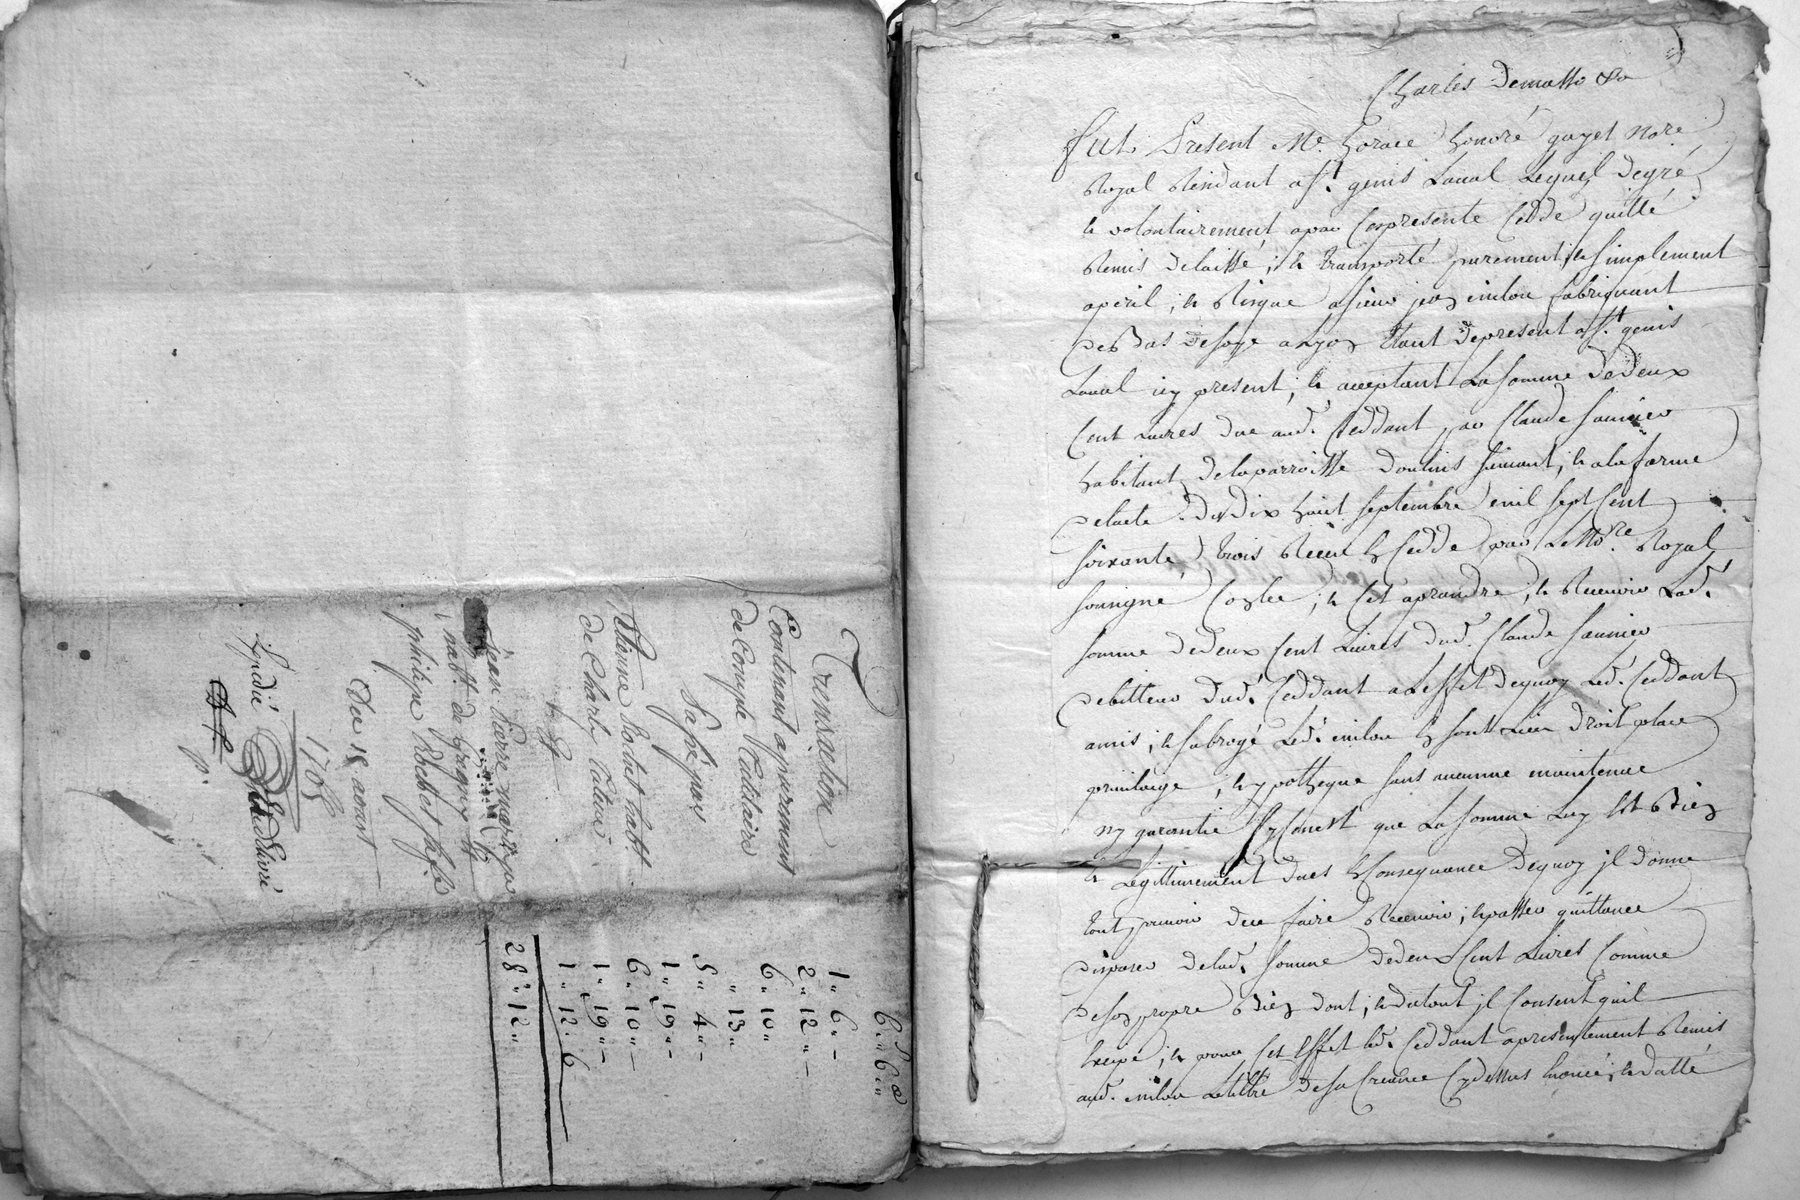 Transaction
Contenant apurement
de Compte Tutélaire
passé par
Etienne Rochet habt
de Charly Tuteur
a St
jean pierre
habt. de Grigny et
philipe Rochet
Du 15 aoust
1705
Expédié
6 " 6 "
1 " 6 " -
2 " 12 " -
6 " 10 "
" 13 "
5 " 4 " -
1 " 19 " -
6 " 10 " -
1 " 19 " -
1 " 12 " 6
28 " 12 "
Charles
fut Present Me. horace honoré gayet Nore
Royal Residant a St. genis Laual Lequel de gré
et volontairement a par Cesprésente Ceddé quitté
Remis delaissé, et transporté purement, et simplement
a peril, et Risque a sieur jean milou fabriquant
des Bas de soye a Lyon Etant de present a St. genis
Laual icy present, et acceptant La somme de deux
Cent Liures due aud. Ceddant par Claude saunier
habitant de la parroisse doulins suiuant, et a la forme
de lacte du dix huit septembre mil sept Cent
soixante trois Receu par Le Nore. Royal
soussigné et Cest a prandre, et Receuoir Lad.
somme de deux Cent Liures dud. Claude saunier
debitteur dud. Ceddant a Leffet dequoy Led. Ceddant
a mis, et subrogé Led. milou En sont Lieu droit place
priuilaige, et hypotheque sans aucunne maintenue
ny garantie sy Cenest que La somme Luy Est Bien
et Legittimement dues En Consequance dequoy il donne
tout pouuoir den faire Receuoir, et passer quittance
disposer de lad. somme de deux Cent Liures Comme
de son propre Bien dont, et du tout il Consent quil
et pour Cet Effet led. Ceddant a presentement Remis
aud. milou Le tittre de sa Creance Cy dessus Enoncé, et datté